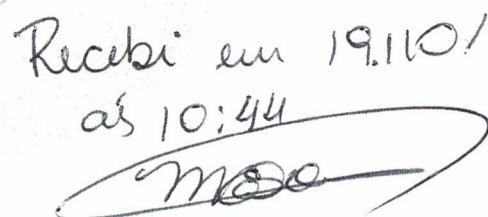 Recebi em 19.110/
às 10:44